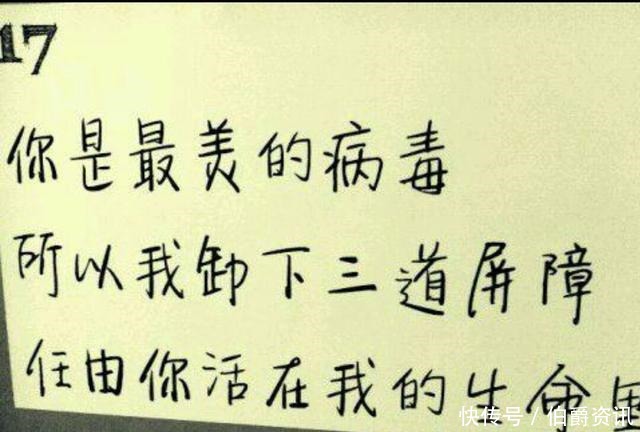 17
你是最美的病毒
所以我卸下三道屏障
任由你活在我的生命里
快传号/伯爵资讯